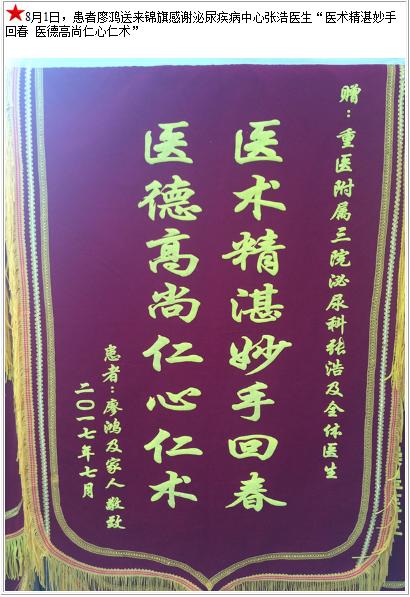 ★8月1日，患者廖鸿送来锦旗感谢泌尿疾病中心张浩医生“医术精湛妙手
回春 医德高尚仁心仁术”
赠：重医附属三院泌尿科张浩及全体医生
医术精湛妙手回春
医德高尚仁心仁术
患者：廖鸿及家人敬致
二〇一七年七月